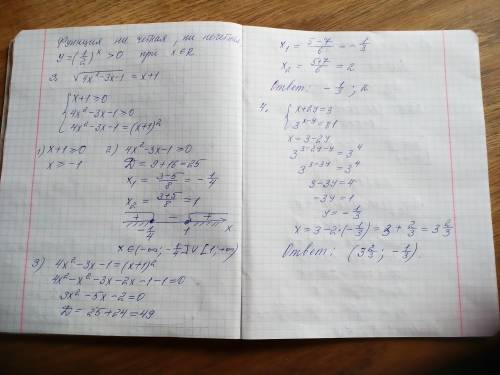 Функция ни чётная, ни нечётная
y=(1/2)^x >0 при x∈R
2. √(4x²-3x-1) = x+1
{ x+1≥0
4x²-3x-1≥0
4x²-3x-1=(x+1)²
1) x+1≥0 2) 4x²-3x-1≥0
x≥-1 D=9+16=25
x₁ = (3-5)/8 = -1/4
x₂ = (3+5)/8 = 1
+ - +
-1/4 1 x
x∈(-∞; -1/4]∪[1;+∞)
3) 4x²-3x-1=(x+1)²
4x²-x²-3x-2x-1-1=0
3x²-5x-2=0
D=25+24=49
x₁ = (5-7)/6 = -1/3
x₂ = (5+7)/6 = 2
Ответ: -1/3; 2
4. { x+2y=3
3^(x-y)=81
x=3-2y
3^(3-2y-y)=3⁴
3^(3-3y)=3⁴
3-3y=4
-3y=1
y=-1/3
x=3-2·(-1/3)=3+2/3=3 2/3
Ответ: (3 2/3; -1/3)